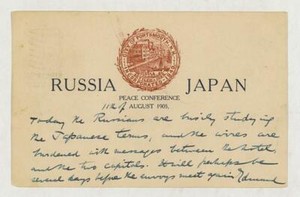 RUSSIA JAPAN
PEACE CONFERENCE
11th of AUGUST 1905.
Today the Russians are busily studying
the Japanese terms, and the wires are
burdened with messages between the hotel
and the two capitals. It will perhaps be
several days before the envoys meet again. Edmund